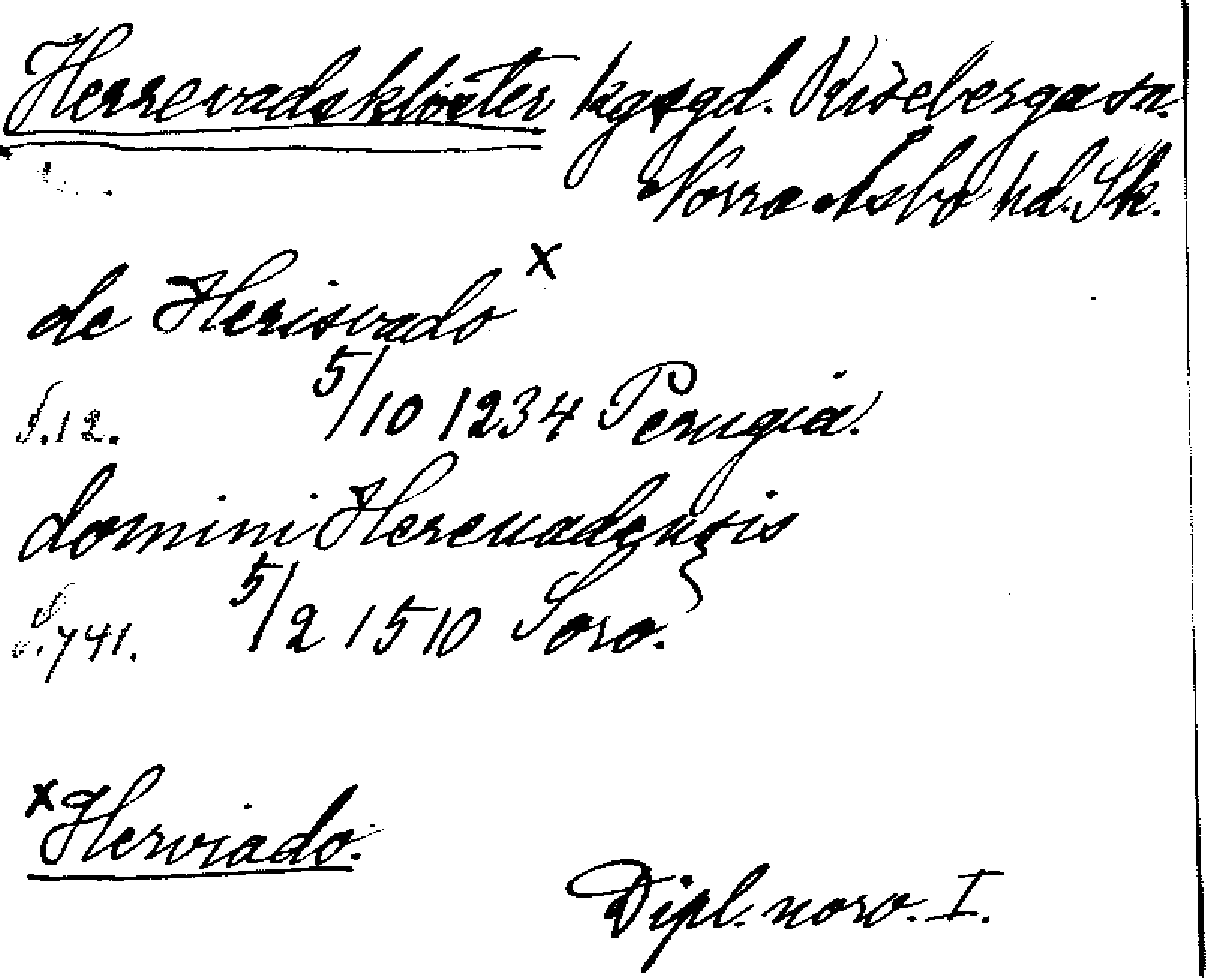 Herrevadskloster kgsgd. Riseberga sn.
Norra Åsbo hd. Sk.
de Herisvado x
S. 12. 5/10 1234 Perugia.
domini Hereuadensis
S. 741. 5/2 1510 Soro.
x Herviado.
Dipl. norv. I.